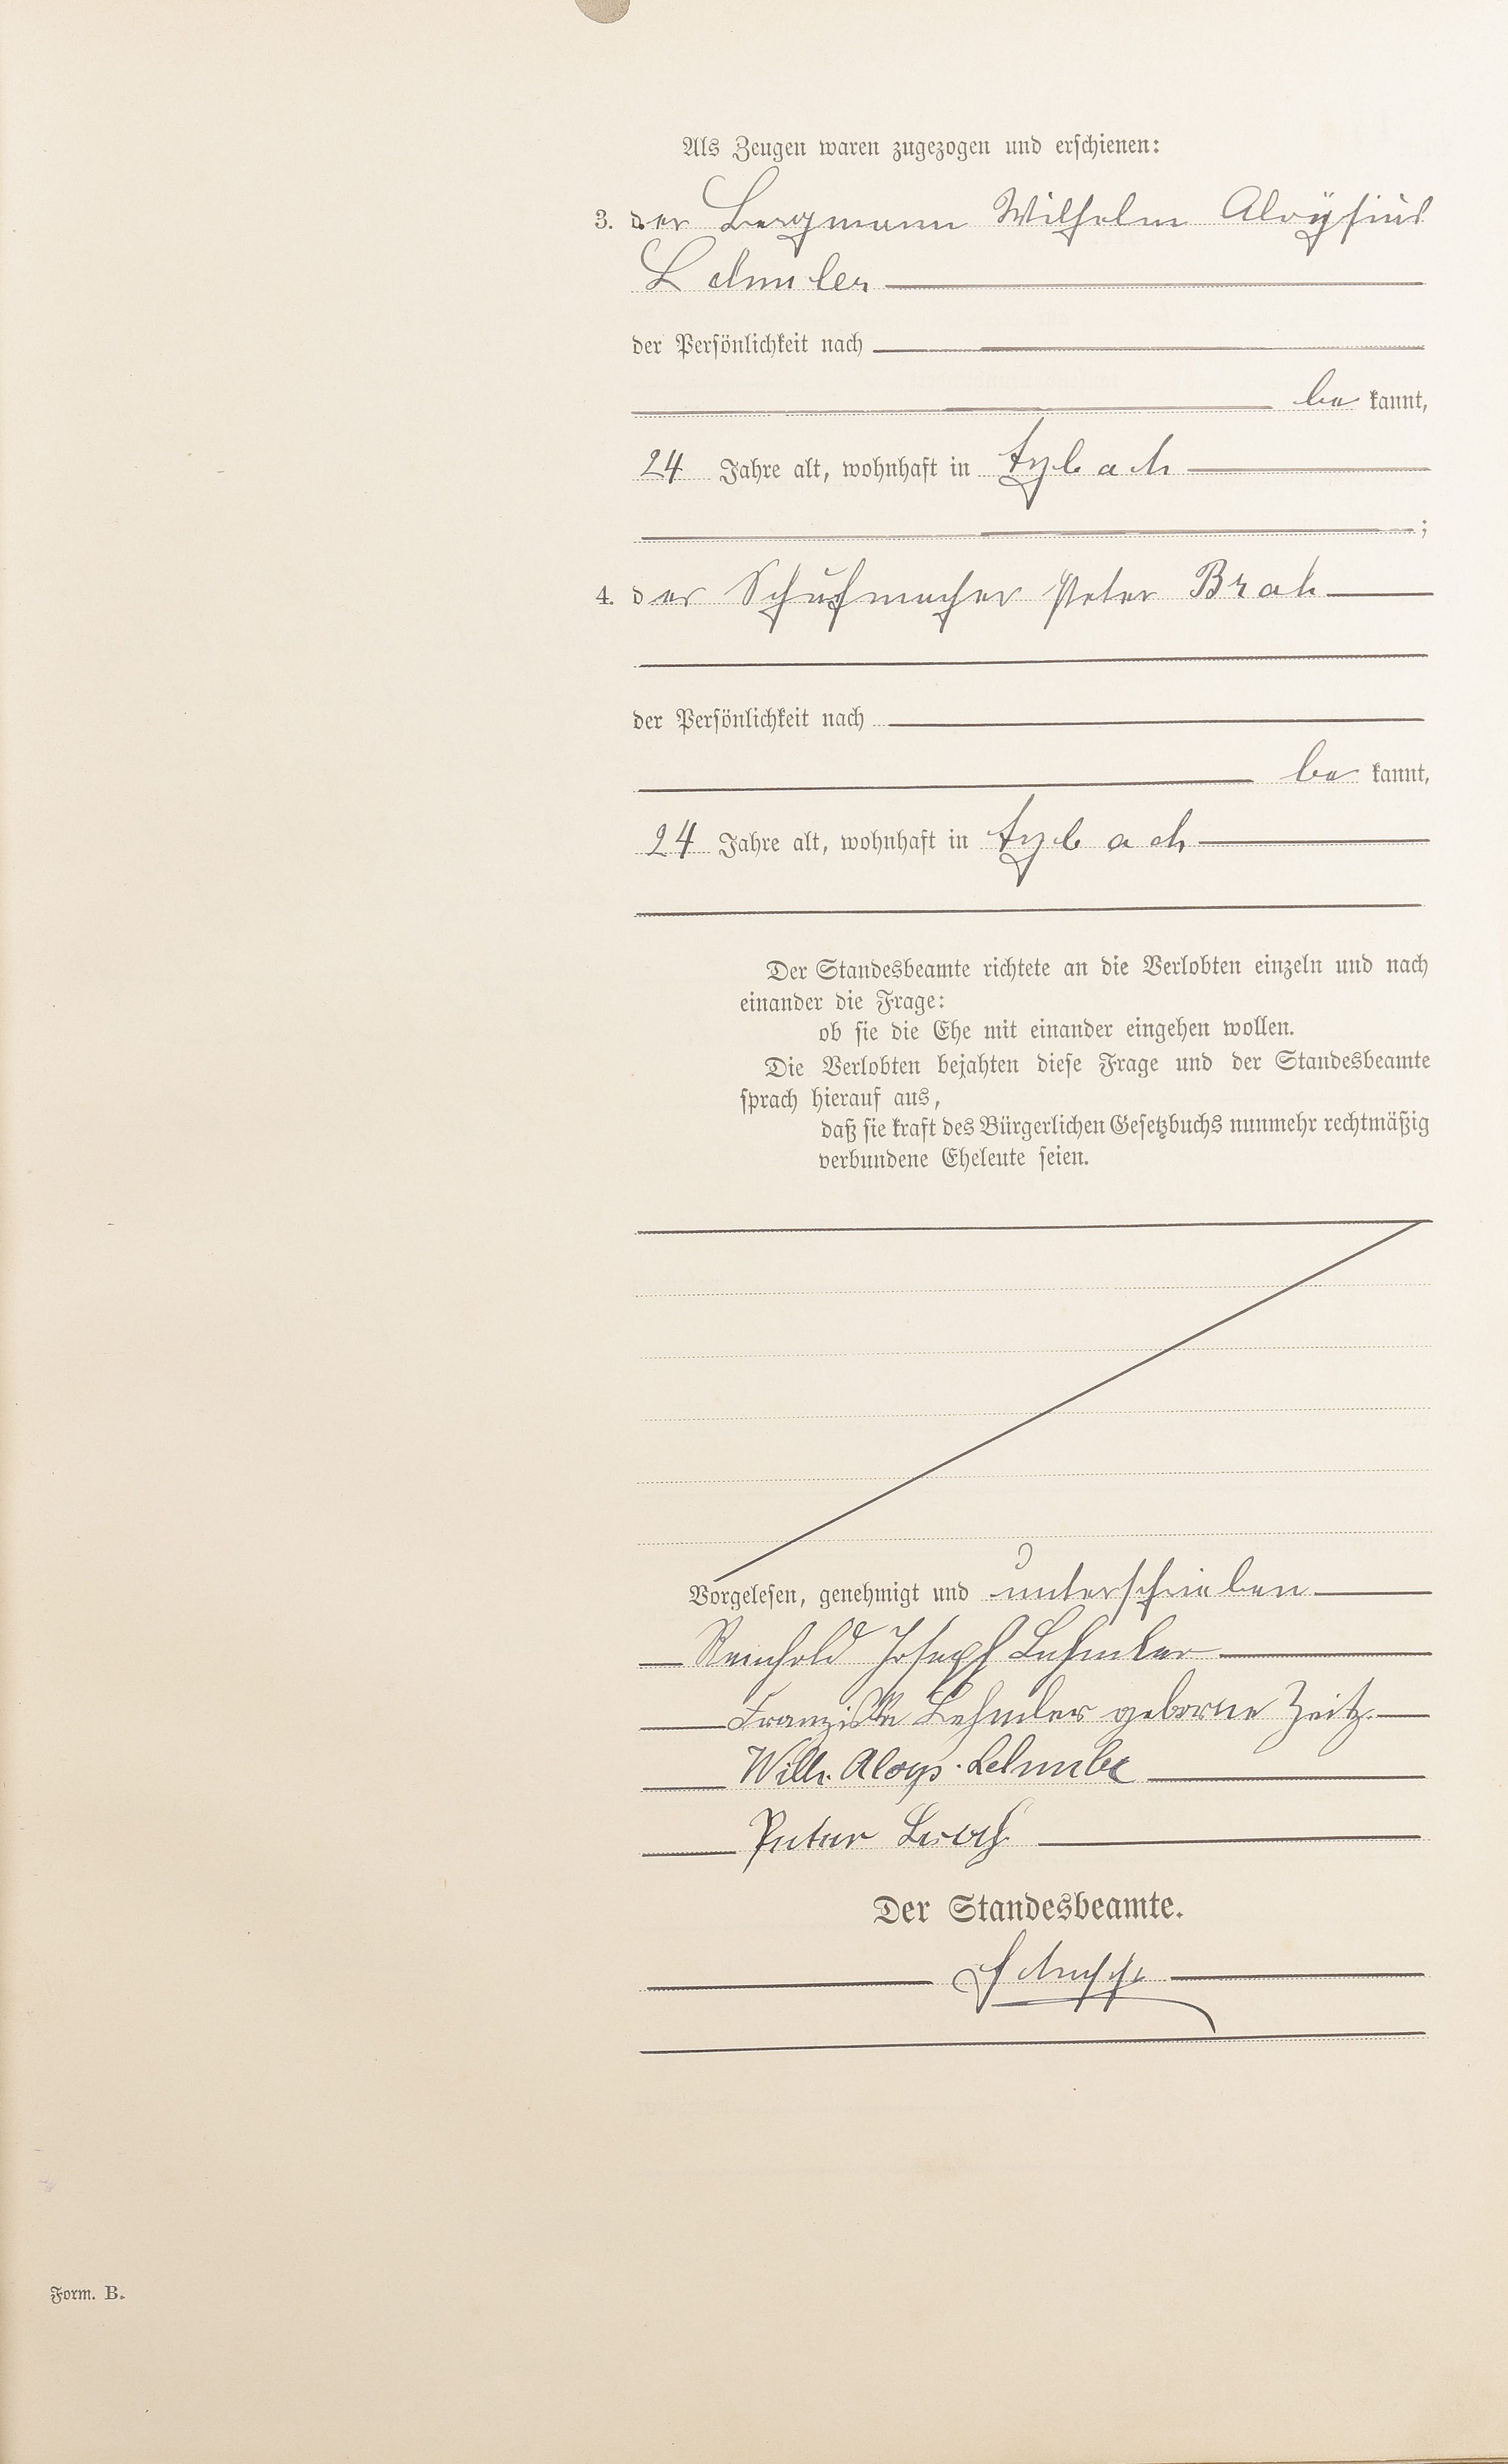 Als Zeugen waren zugezogen und erschienen:
3. der Bergmann Wilhelm Aloÿsius
Lehmler
der Persönlichkeit nach
be kannt,
24 Jahre alt, wohnhaft in
;
4. der Schuhmacher Peter
der Persönlichkeit nach
be kannt,
24 Jahre alt, wohnhaft in
Der Standesbeamte richtete an die Verlobten einzeln und nach
einander die Frage:
ob sie die Ehe mit einander eingehen wollen.
Die Verlobten bejahten diese Frage und der Standesbeamte
sprach hierauf aus,
daß sie kraft des Bürgerlichen Gesetzbuchs nunmehr rechtmäßig
verbundene Eheleute seien.
Vorgelesen, genehmigt und unterschrieben
Reinhold Joseph Lehmler
Franziska Lehmler geborne Zeitz.
Wilh. Aloys. Lehmler
Peter
Der Standesbeamte.
Form. B.